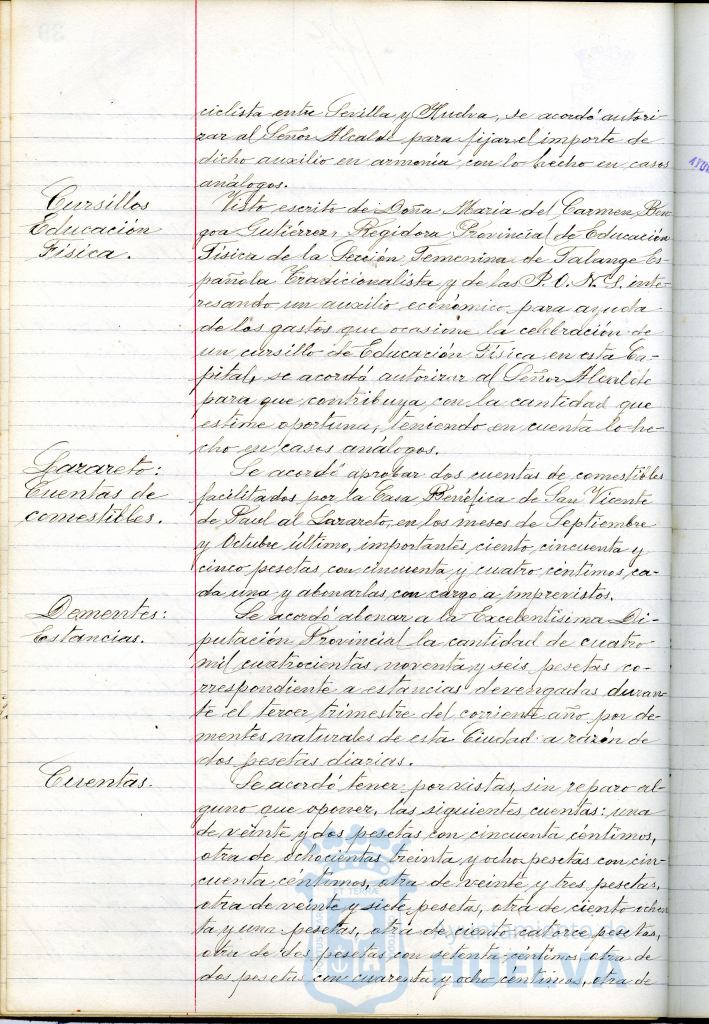 ciclista entre Sevilla y Huelva, se acordó autori-
zar al Señor Alcalde para fijar el importe de
dicho auxilio en armonía con lo hecho en casos
análogos.
Cursillos
Educación
Física.
Visto escrito de Doña María del Carmen Ben-
goa Gutiérrez, Regidora Provincial de Educación
Física de la Sección Femenina de Falange Es-
pañola Tradicionalista y de las J.O.N.S. inte-
resando un auxilio económico para ayuda
de los gastos que ocasione la celebración de
un cursillo de Educación Física en esta Ca-
pital, se acordó autorizar al Señor Alcalde
para que contribuya con la cantidad que
estime oportuna, teniendo en cuenta lo he-
cho en casos análogos.
Lazareto:
Cuentas de
comestibles.
Se acordó aprobar dos cuentas de comestibles
facilitados por la Casa Benéfica de San Vicente
de Paul al Lazareto, en los meses de Septiembre
y Octubre último, importantes ciento cincuenta y
cinco pesetas con cincuenta y cuatro céntimos ca-
da una y abonarlas con cargo a imprevistos.
Dementes:
Estancias.
Se acordó abonar a la Excelentísima Di-
putación Provincial la cantidad de cuatro
mil cuatrocientas noventa y seis pesetas co-
rrespondiente a estancias devengadas duran-
te el tercer trimestre del corriente año por de-
mentes naturales de esta Ciudad a razón de
dos pesetas diarias.
Cuentas.
Se acordó tener por vistas, sin reparo al-
guno que oponer, las siguientes cuentas: una
de veinte y dos pesetas con cincuenta céntimos,
otra de ochocientas treinta y ocho pesetas con cin-
cuenta céntimos, otra de veinte y tres pesetas,
otra de veinte y siete pesetas, otra de ciento ochen-
ta y una pesetas, otra de ciento catorce pesetas,
otra de dos pesetas con setenta céntimos, otra de
dos pesetas con cuarenta y ocho céntimos, otra de
HUELVA